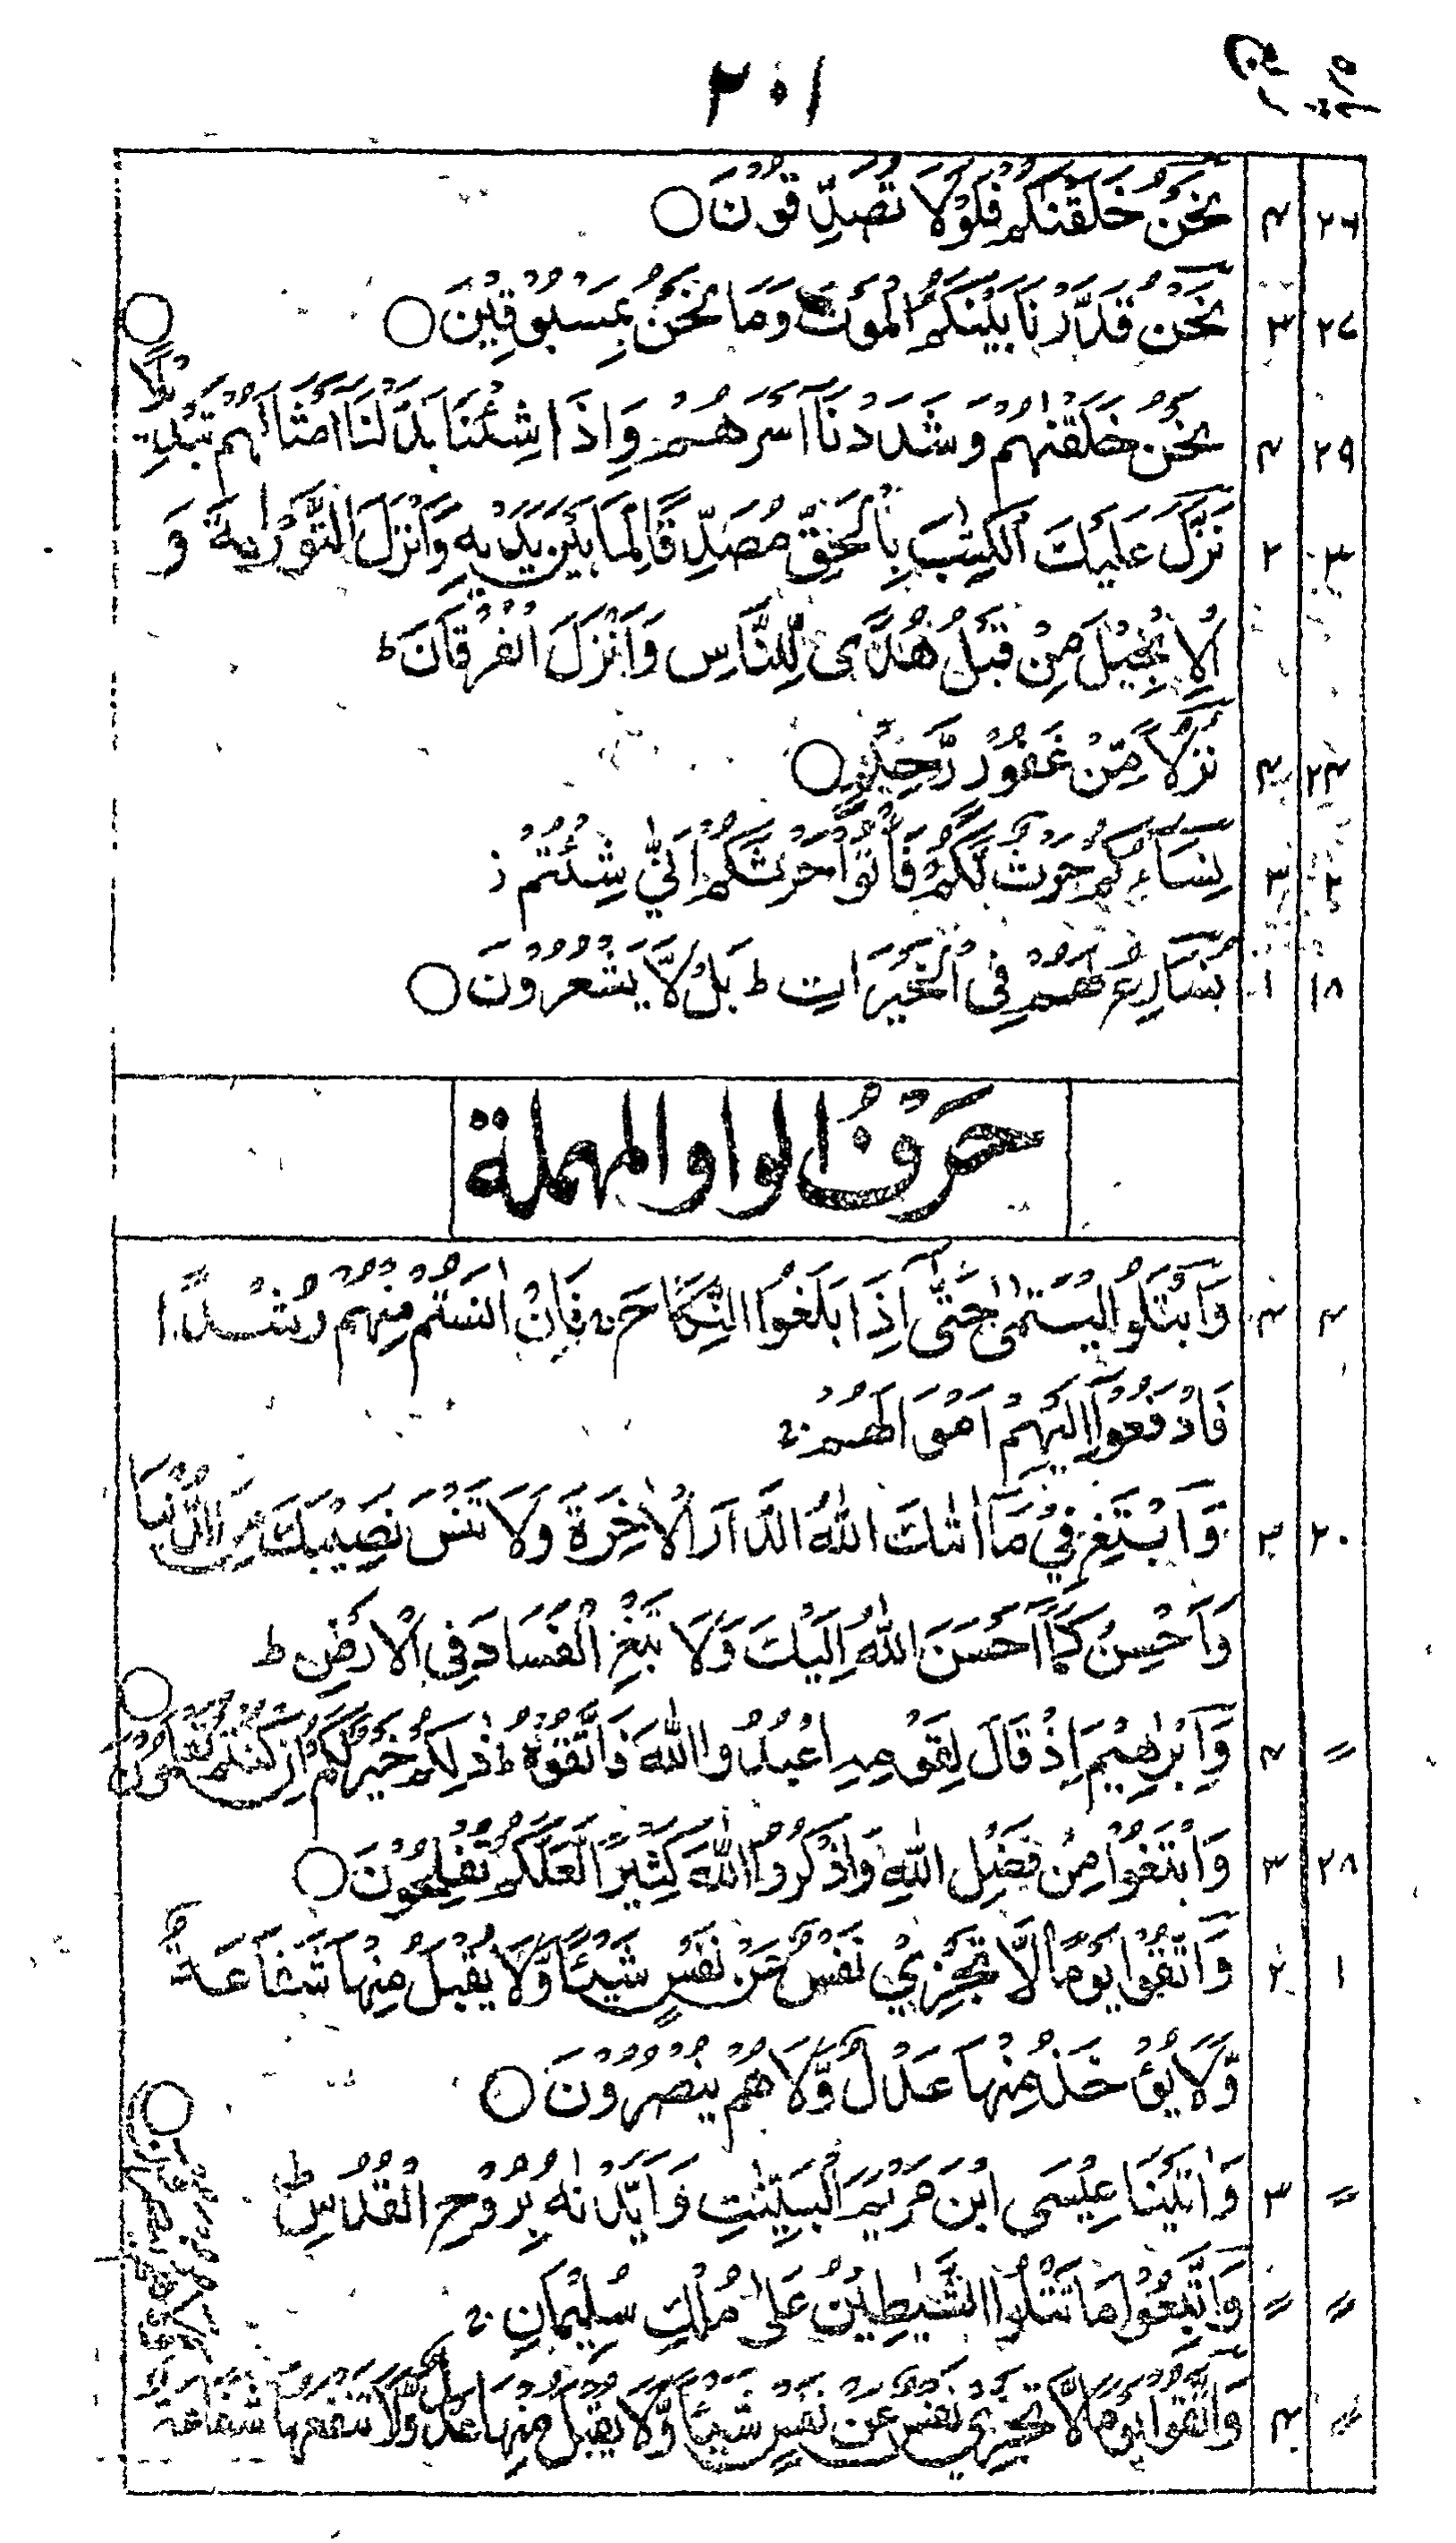 ٢٠١
٢٦ ٤ نَحْنُ خَلَقْنٰكُمْ فَلَوْلَا تُصَدِّقُوْنَ ○
٢٧ ٣ نَحْنُ قَدَّرْنَا بَيْنَكُمُ الْمَوْتَ وَمَا نَحْنُ بِمَسْبُوْقِيْنَ ○
٢٩ ٤ نَحْنُ خَلَقْنٰهُمْ وَشَدَدْنَا اَسْرَهُمْ وَاِذَا شِئْنَا بَدَّلْنَا اَمْثَالَهُمْ تَبْدِيْلًا ○
٣ ٢ نَزَّلَ عَلَيْكَ الْكِتٰبَ بِالْحَقِّ مُصَدِّقًا لِّمَا بَيْنَ يَدَيْهِ وَاَنْزَلَ التَّوْرٰىةَ وَ
الْاِنْجِيْلَ مِنْ قَبْلُ هُدًى لِّلنَّاسِ وَاَنْزَلَ الْفُرْقَانَ ط
٢٤ ٤ نُزُلًا مِّنْ غَفُوْرٍ رَّحِيْمٍ ○
٢ ٣ نِسَاءُكُمْ حَرْثٌ لَّكُمْ فَاْتُوْا حَرْثَكُمْ اَنّٰى شِئْتُمْ ز
١٨ ١ نُسَارِعُ لَهُمْ فِى الْخَيْرَاتِ ط بَلْ لَّا يَشْعُرُوْنَ ○
حَرْفُ الواو المهملة
٤ ٤ وَابْتَلُوا الْيَتٰمٰى حَتّٰى اِذَا بَلَغُوا النِّكَاحَ ج فَاِنْ اٰنَسْتُمْ مِّنْهُمْ رُشْدًا
فَادْفَعُوْا اِلَيْهِمْ اَمْوَالَهُمْ ج
٢٠ ٣ وَابْتَغِ فِيْ مَا اٰتٰىكَ اللّٰهُ الدَّارَ الْاٰخِرَةَ وَلَا تَنْسَ نَصِيْبَكَ مِنَ الدُّنْيَا
وَاَحْسِنْ كَمَا اَحْسَنَ اللّٰهُ اِلَيْكَ وَلَا تَبْغِ الْفَسَادَ فِى الْاَرْضِ ط
〃 ٤ وَاِبْرٰهِيْمَ اِذْ قَالَ لِقَوْمِهِ اعْبُدُوا اللّٰهَ وَاتَّقُوْهُ ط ذٰلِكُمْ خَيْرٌ لَّكُمْ اِنْ كُنْتُمْ تَعْلَمُوْنَ ○
٢٨ ٣ وَابْتَغُوْا مِنْ فَضْلِ اللّٰهِ وَاذْكُرُوا اللّٰهَ كَثِيْرًا لَّعَلَّكُمْ تُفْلِحُوْنَ ○
١ ٢ وَاتَّقُوْا يَوْمًا لَّا تَجْزِيْ نَفْسٌ عَنْ نَفْسٍ شَيْئًا وَّلَا يُقْبَلُ مِنْهَا شَفَاعَةٌ
وَّلَا يُؤْخَذُ مِنْهَا عَدْلٌ وَّلَا هُمْ يُنْصَرُوْنَ ○
〃 ٣ وَاٰتَيْنَا عِيْسَى ابْنَ مَرْيَمَ الْبَيِّنٰتِ وَاَيَّدْنٰهُ بِرُوْحِ الْقُدُسِ ط
〃 〃 وَاتَّبَعُوْا مَا تَتْلُوا الشَّيٰطِيْنُ عَلٰى مُلْكِ سُلَيْمٰنَ ج
〃 ٤ وَاتَّقُوْا يَوْمًا لَّا تَجْزِيْ نَفْسٌ عَنْ نَفْسٍ شَيْئًا وَّلَا يُقْبَلُ مِنْهَا عَدْلٌ وَّلَا تَنْفَعُهَا شَفَاعَةٌ
وَّلَا هُمْ يُنْصَرُوْنَ ○